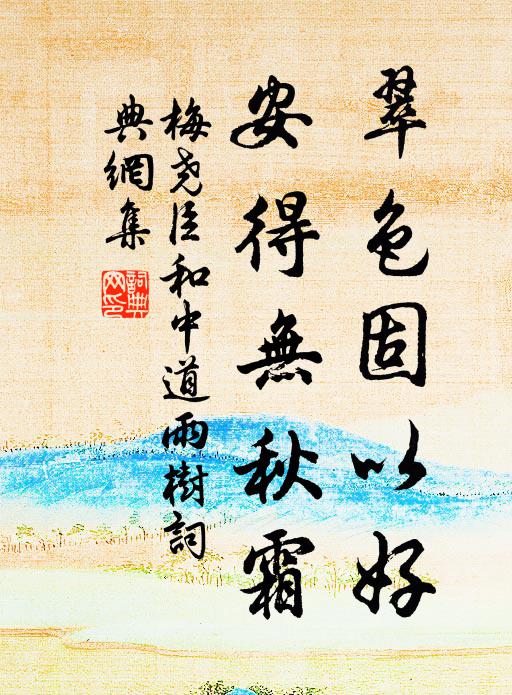 翠色固以好
安得無秋霜
梅堯臣和中道雨樹詞
典網集
詞典
网印